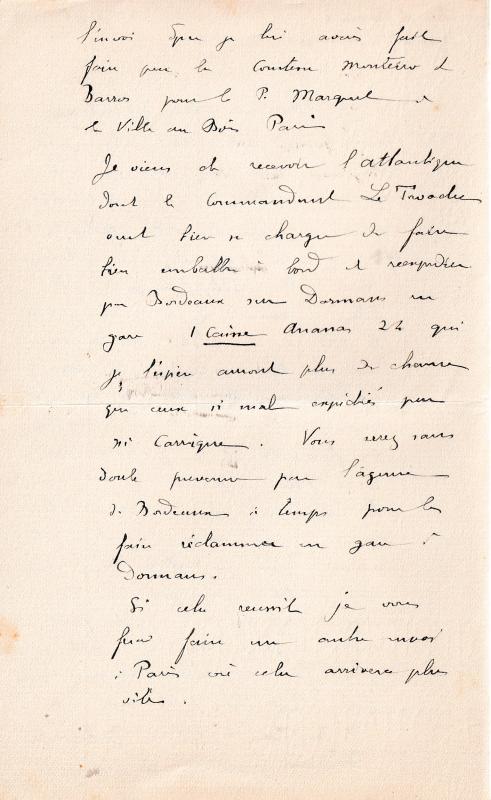 l'envoi que je lui avais fait
faire par la Comtesse Monteiro de
Barros pour le P. Marquet de
la Ville au Bois Paris
Je viens de recevoir l'atlantique
dont le Commandant Le Troadec
veut bien se charger de faire
bien emballer à bord et reexpedier
par Bordeaux sur Dormans en
gare 1 Caisse Ananas 24 qui
je l'espère auront plus de chance
que ceux si mal expédiés par
Carrique. Vous serez sans
doute prevenu par l'agence
de Bordeaux à temps pour les
faire réclammer en gare à
Dormans.
Si cela reussit je vous
ferai faire un autre envoi
à Paris où cela arrivera plus
vite.